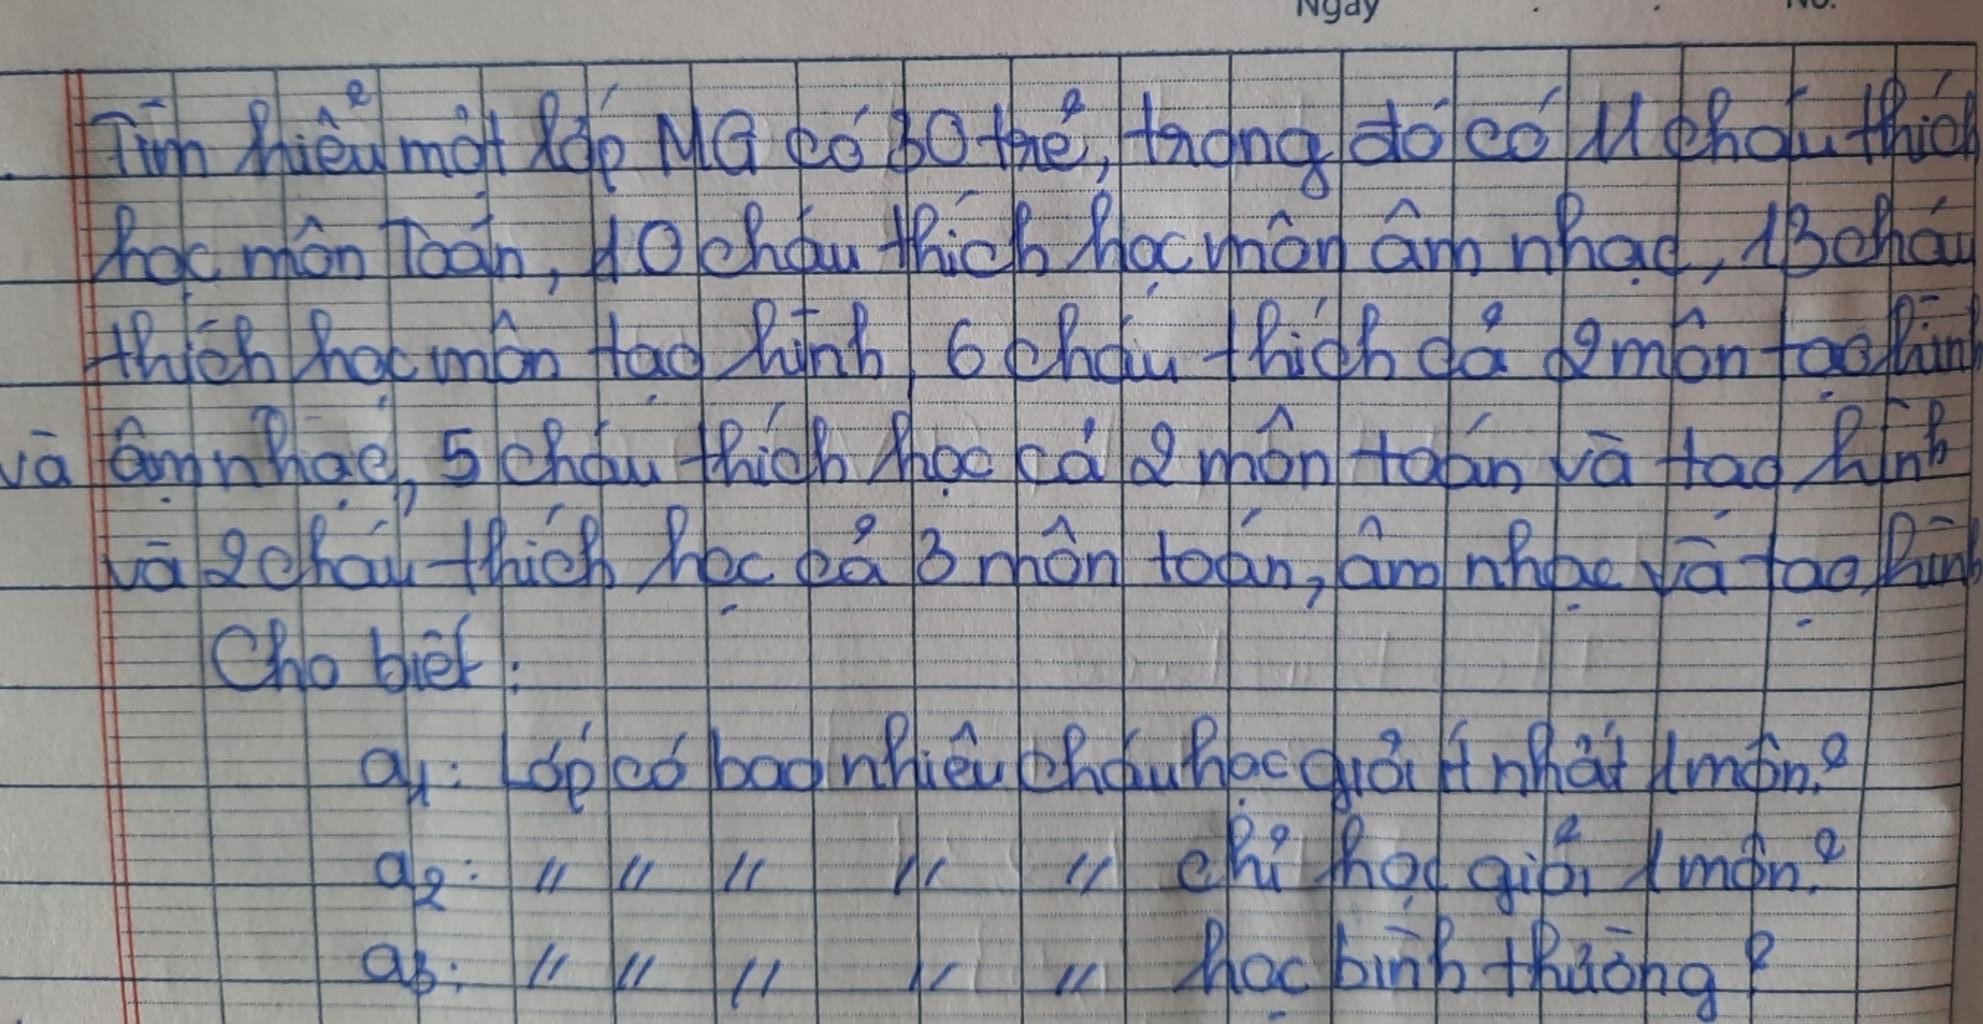 Ngày No.
Tìm hiểu một lớp MG có 30 trẻ, trong đó có 11 cháu thích
học môn Toán, 10 cháu thích học môn âm nhạc, 13 cháu
thích học môn tạo hình, 6 cháu thích cả 2 môn tạo hình
và âm nhạc, 5 cháu thích học cả 2 môn toán và tạo hình
và 2 cháu thích học cả 3 môn toán, âm nhạc và tạo hình
Cho biết:
a1: Lớp có bao nhiêu cháu học giỏi ít nhất 1 môn?
a2: " " " " " chỉ học giỏi 1 môn?
a3: " " " " " học bình thường?